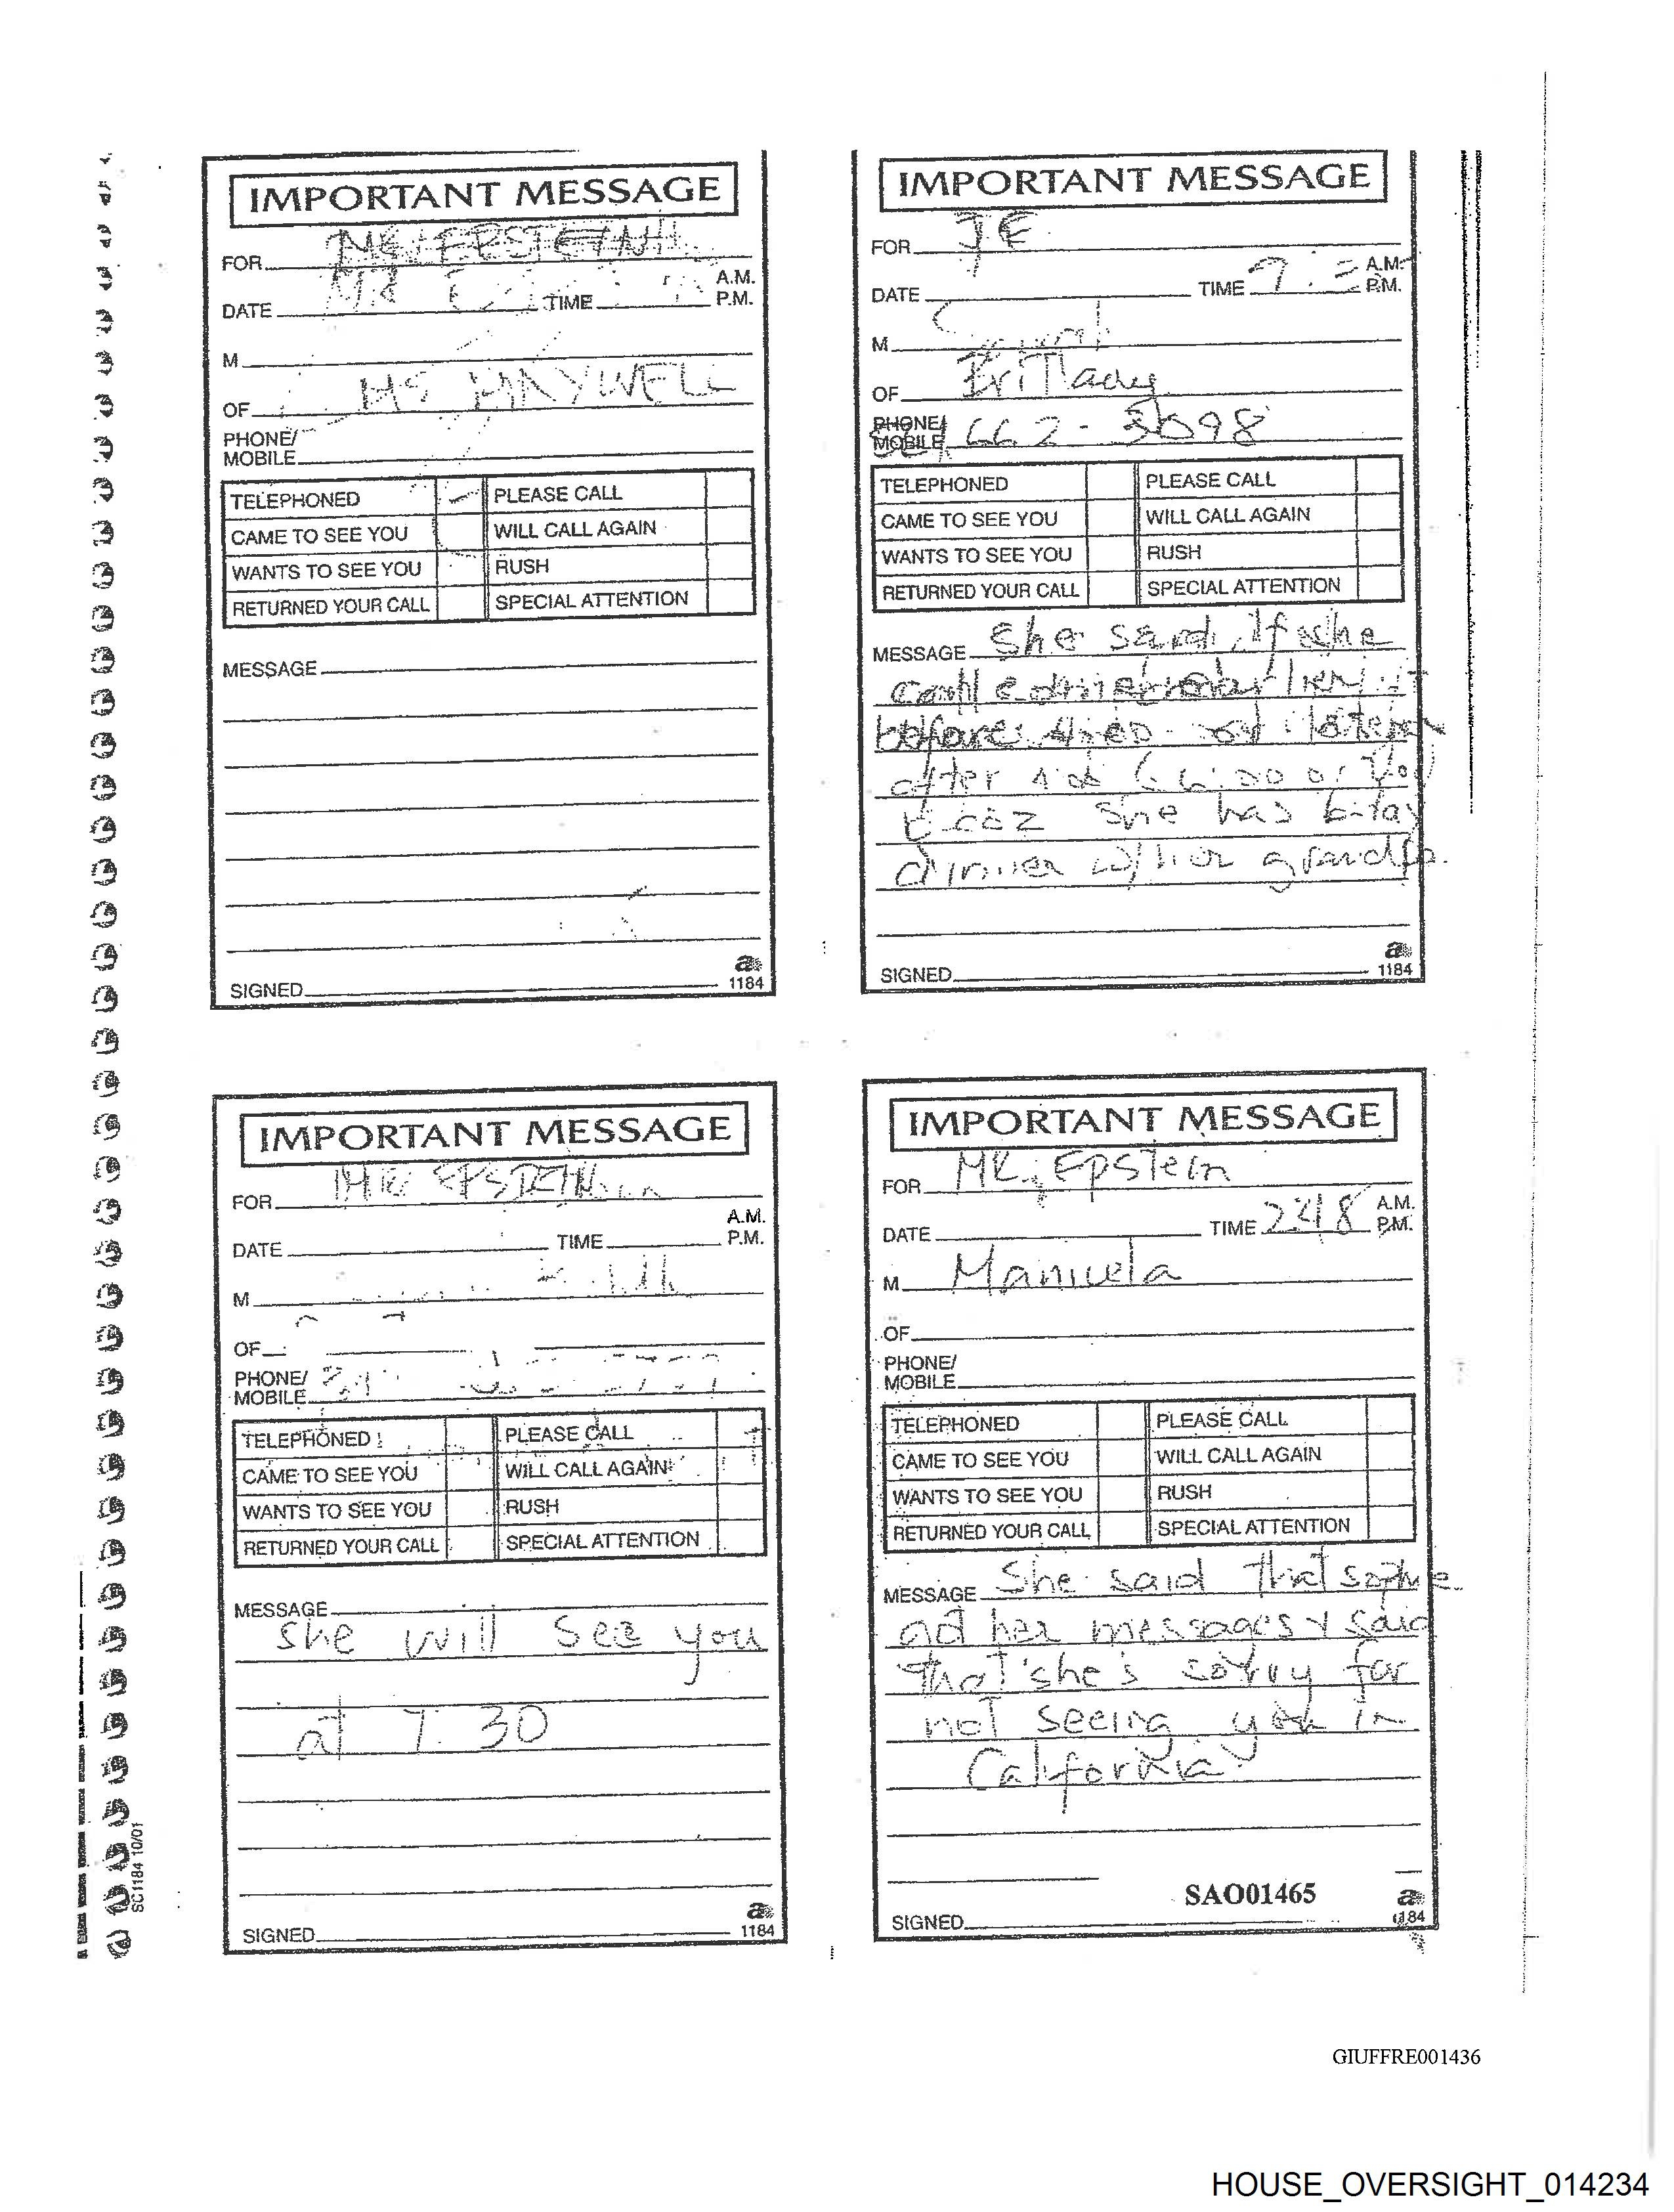 IMPORTANT MESSAGE
FOR MR EPSTEIN
DATE TIME A.M. P.M.
M
OF MS MAXWELL
PHONE/ MOBILE
TELEPHONED PLEASE CALL
CAME TO SEE YOU WILL CALL AGAIN
WANTS TO SEE YOU RUSH
RETURNED YOUR CALL SPECIAL ATTENTION
MESSAGE
SIGNED
a
1184
IMPORTANT MESSAGE
FOR JE
DATE TIME A.M. P.M.
M
OF
PHONE/ MOBILE 662-5098
TELEPHONED PLEASE CALL
CAME TO SEE YOU WILL CALL AGAIN
WANTS TO SEE YOU RUSH
RETURNED YOUR CALL SPECIAL ATTENTION
MESSAGE She said, if she
before
after
she has
dinner w/her
SIGNED
a
1184
IMPORTANT MESSAGE
FOR MR EPSTEIN
DATE TIME A.M. P.M.
M
OF
PHONE/ MOBILE
TELEPHONED PLEASE CALL
CAME TO SEE YOU WILL CALL AGAIN
WANTS TO SEE YOU RUSH
RETURNED YOUR CALL SPECIAL ATTENTION
MESSAGE
she will see you
at 7:30
SIGNED
a
1184
IMPORTANT MESSAGE
FOR MR. Epstein
DATE TIME 2:48 A.M. P.M.
M Manuela
OF
PHONE/ MOBILE
TELEPHONED PLEASE CALL
CAME TO SEE YOU WILL CALL AGAIN
WANTS TO SEE YOU RUSH
RETURNED YOUR CALL SPECIAL ATTENTION
MESSAGE She said that Sophie
her messages & said
that she's sorry for
not seeing you in
California
SAO01465
SIGNED
a
1184
SC1184 10/01
GIUFFRE001436
HOUSE_OVERSIGHT_014234